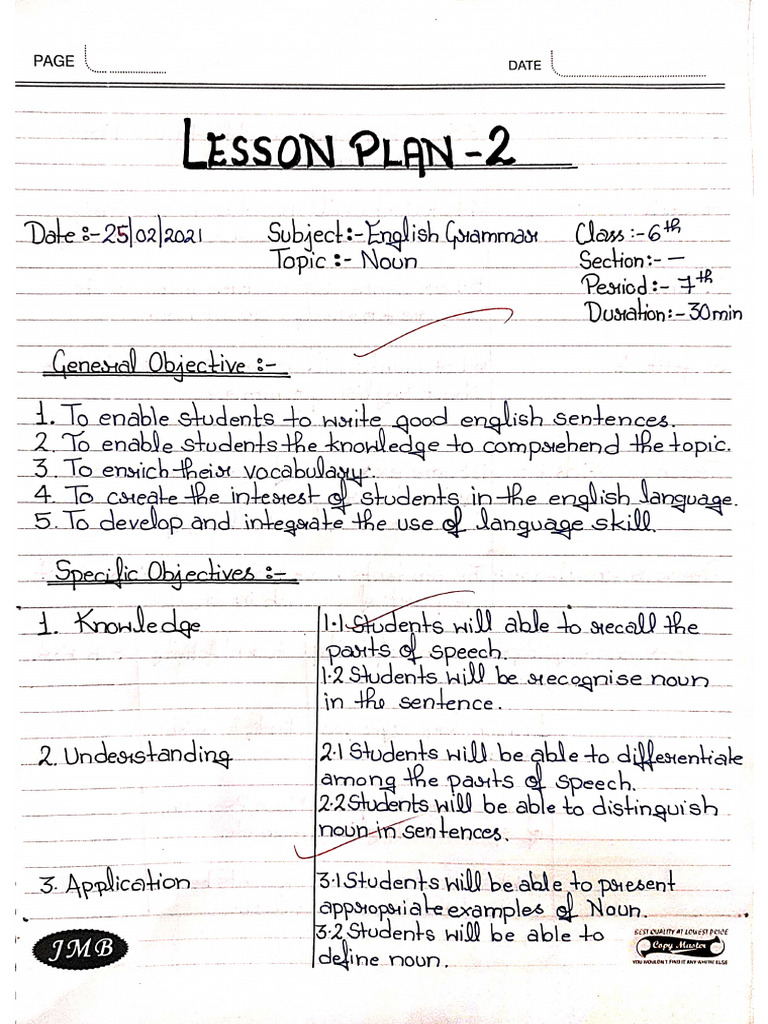 PAGE
DATE
LESSON PLAN-2
Date:-25/02/2021 Subject:-English Grammar Class:-6th
Topic:- Noun Section:- —
Period:- 7th
Duration:-30min
General Objective:-
1. To enable students to write good english sentences.
2. To enable students the knowledge to comprehend the topic.
3. To enrich their vocabulary.
4. To create the interest of students in the english language.
5. To develop and integrate the use of language skill.
Specific Objectives:-
1. Knowledge 1.1 Students will able to recall the
parts of speech.
1.2 Students will be recognise noun
in the sentence.
2. Understanding 2.1 Students will be able to differentiate
among the parts of speech.
2.2 Students will be able to distinguish
noun in sentences.
3. Application 3.1 Students will be able to present
appropriate examples of Noun.
3.2 Students will be able to
define noun.
JMB
BEST QUALITY AT LOWEST PRICE
Copy Master
YOU WOULDN'T FIND IT ANY WHERE ELSE